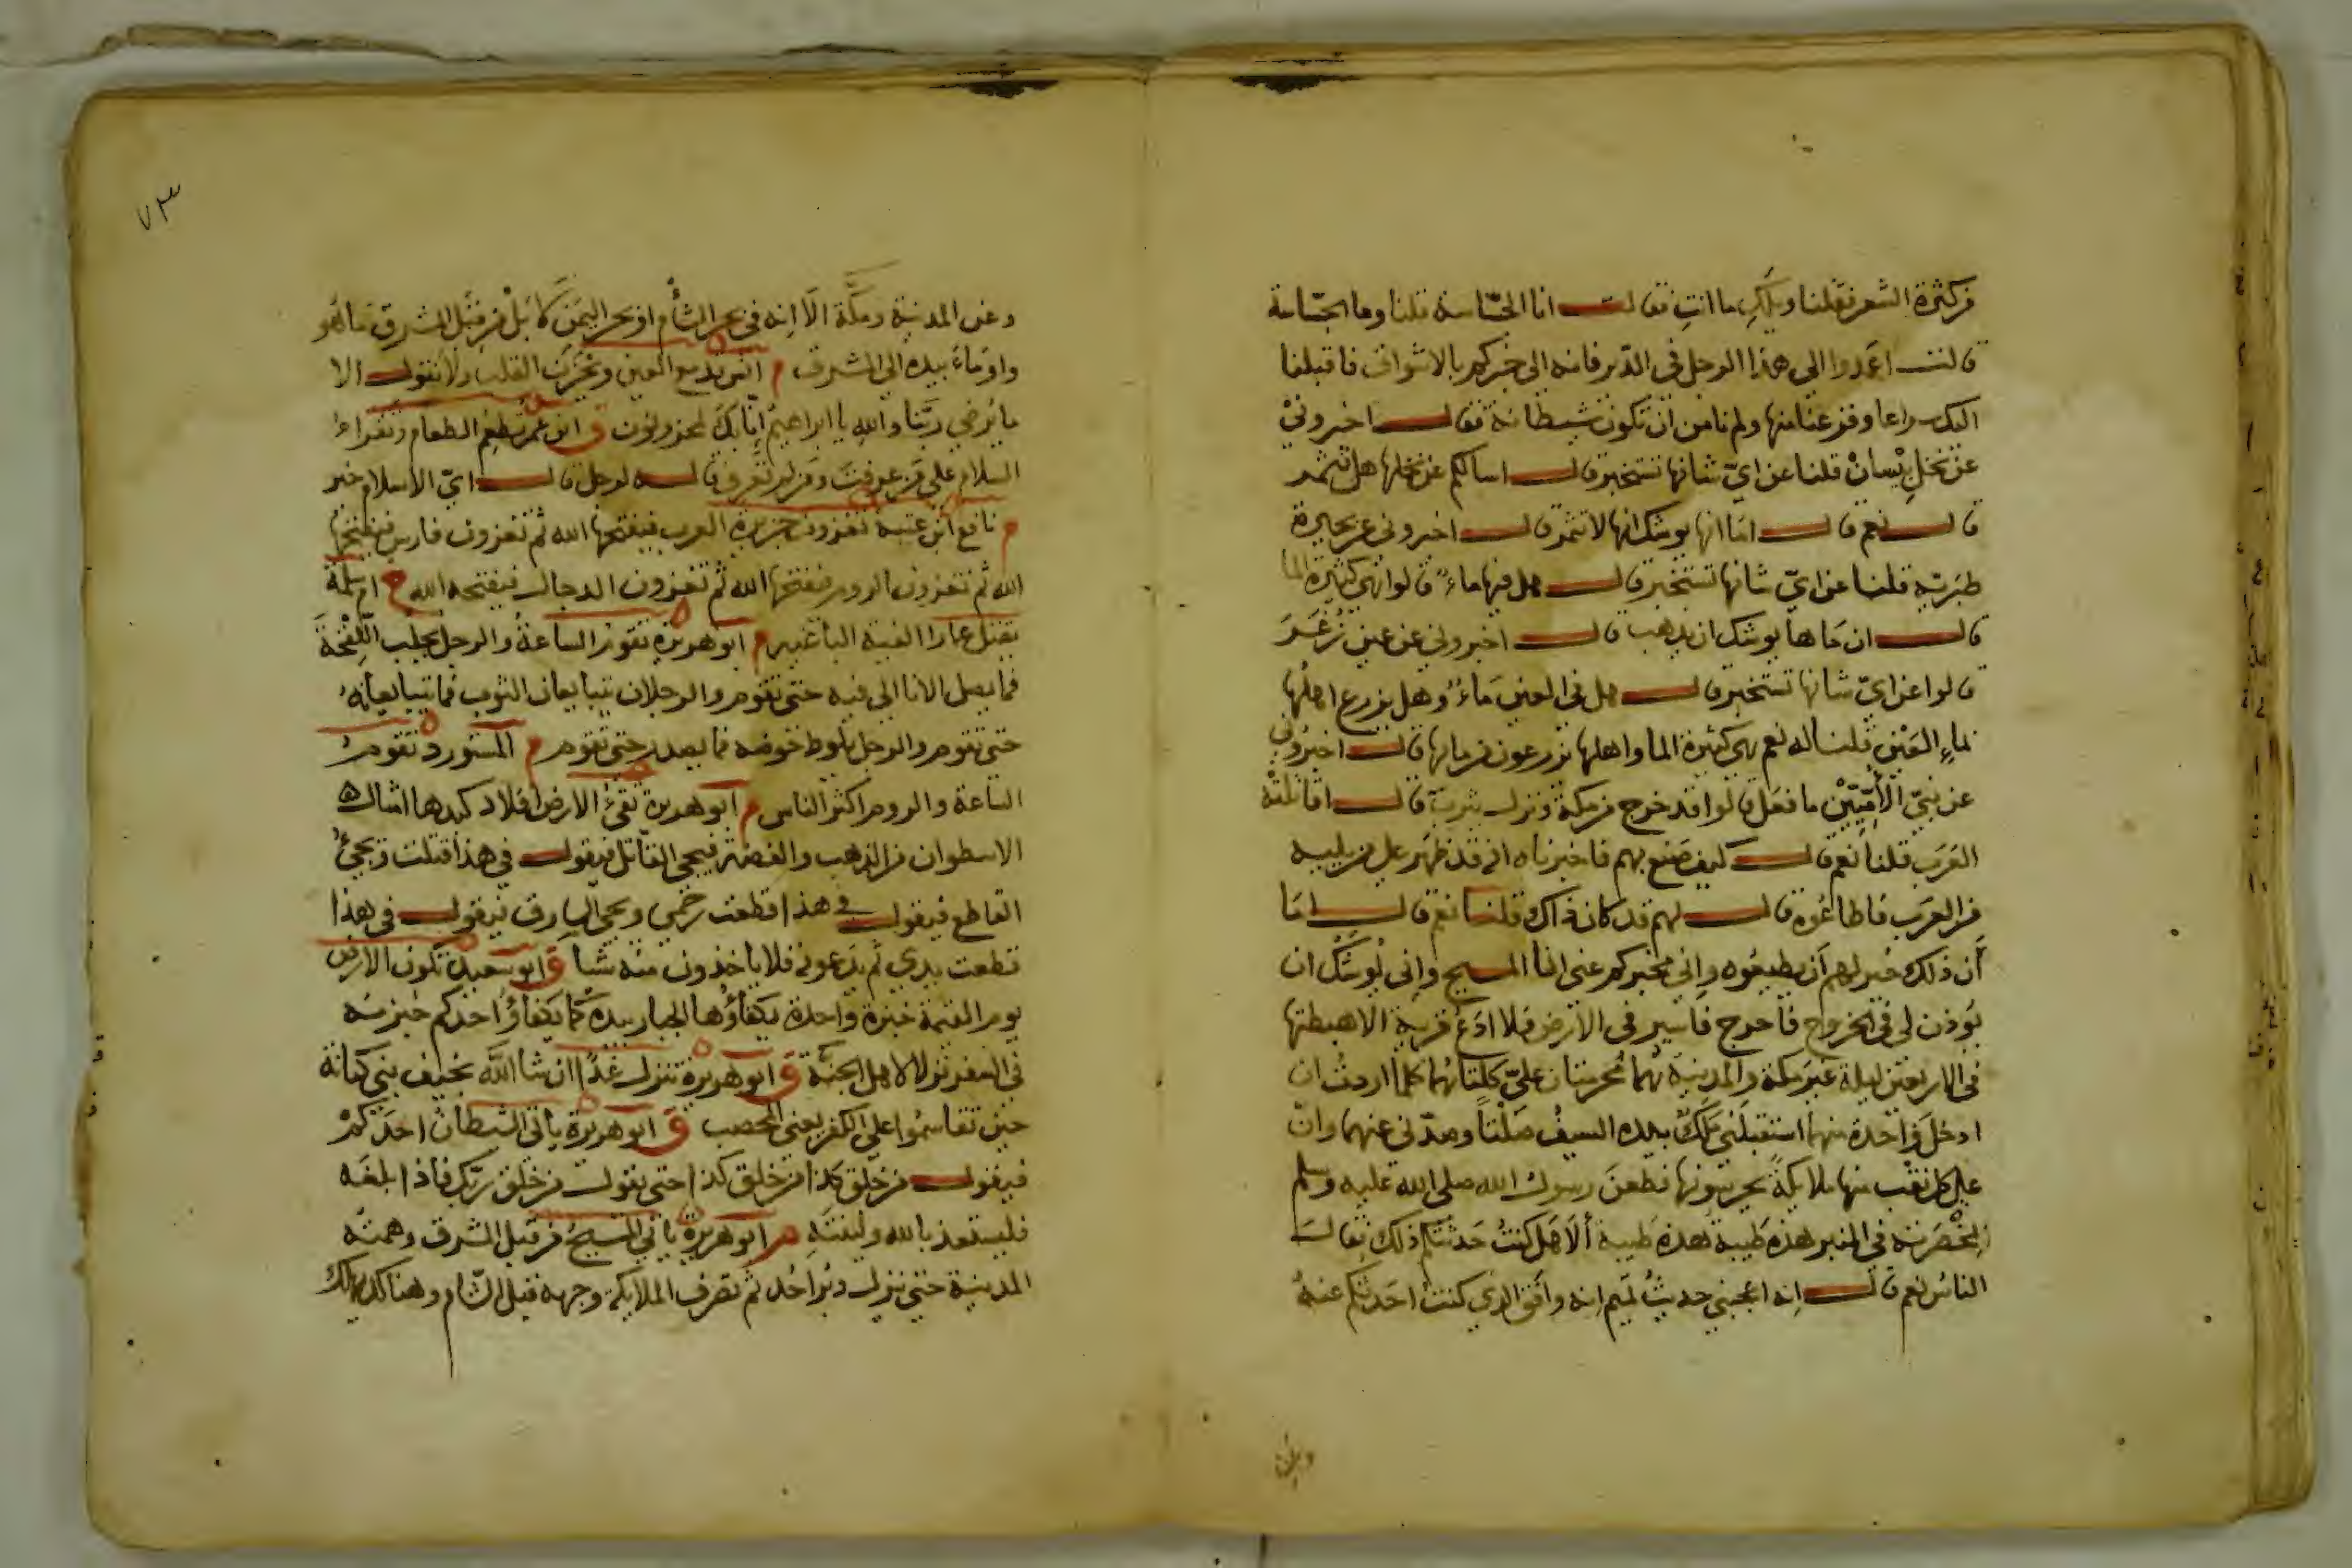 من كثرة الشعر فقلنا ويلك ما انت فقالت انا الجساسة قلنا وما الجساسة
قالت اعمدوا الى هذا الرجل في الدير فانه الى خبركم بالاشواق فاقبلنا
اليك سراعا وفزعنا منها ولم نامن ان تكون شيطانة فقال اخبروني
عن نخل بيسان قلنا عن اي شانها تستخبر قال اسالكم عن نخلها هل تثمر
قلنا نعم قال اما انها يوشك انها لا تثمر قال اخبروني عن بحيرة
طبرية قلنا عن اي شانها تستخبر قال هل فيها ماء قالوا هي كثيرة الما
قال ان ماها يوشك ان يذهب قال اخبروني عن عين زغر
قالوا عن اي شانها تستخبر قال هل في العين ماء وهل يزرع اهلها
بماء العين قلنا له نعم هي كثيرة الما واهلها يزرعون من مائها قال اخبروني
عن نبي الأميين ما فعل قالوا قد خرج من مكة ونزل يثرب قال اقاتلته
العرب قلنا نعم قال كيف صنع بهم فاخبرناه انه قد ظهر على من يليه
من العرب فاطاعوه قال لهم قد كان ذاك قلنا نعم قال اما
أن ذلك خير لهم أن يطيعوه وإني مخبركم عني انا المسيح وإني يوشك ان
يؤذن لي في الخروج فأخرج فأسير في الأرض فلا ادع قرية الا هبطتها
في اربعين ليلة غير مكة والمدينة هما محرمتان علي كلتاهما كلما اردت ان
ادخل واحدة منهما استقبلني ملك بيده السيف صلتا يصدني عنهما وان
على كل نقب منها ملايكة يحرسونها فطعن رسول الله صلى الله عليه وسلم
بمخصرته في المنبر هذه طيبة هذه طيبة ألا هل كنت حدثتكم ذلك فقال
الناس نعم قال إنه اعجبني حديث تميم انه وافق الذي كنت احدثكم عنه
وعن
وعن المدينة ومكة الا انه في بحر الشأم او بحر اليمن لا بل من قبل المشرق ما هو
واوماء بيده الى المشرق م انس تدمع العين ويحزن القلب ولا نقول الا
ما يرضي ربنا والله يا ابراهيم إنا بك لمحزونون ق ابن عمر تطعم الطعام وتقراء
السلام على من عرفت ومن لم تعرف قاله لرجل قال اي الاسلام خير
م نافع ابن عتبة تغزون جزيرة العرب فيفتحها الله ثم تغزون فارس فيفتحها
الله ثم تغزون الروم فيفتحها الله ثم تغزون الدجال فيفتحه الله م ام سلمة
تقتل عمارا الفئة الباغية م ابو هريرة تقوم الساعة والرجل يحلب اللقحة
فما يصل الانا الى فيه حتى تقوم والرجلان يتبايعان الثوب فما يتبايعانه
حتى تقوم والرجل يلوط حوضه فما يصدر حتى تقوم م المستورد تقوم
الساعة والروم اكثر الناس م ابو هريرة تقئ الارض أفلاذ كبدها امثال
الاسطوان من الذهب والفضة فيجي القاتل فيقول في هذا قتلت ويجئ
القاطع فيقول في هذا قطعت رحمي ويجي السارق فيقول في هذا
قطعت يدي ثم يدعونه فلا ياخذون منه شيا ق ابو سعيد تكون الارض
يوم القيمة خبزة واحدة يكفاؤها الجبار بيده كما يكفاؤ احدكم خبزته
في السفر نزلا لاهل الجنة ق ابو هريرة ننزل غدا ان شا الله بخيف بني كنانة
حيث تقاسموا على الكفر يعني المحصب ق ابو هريرة ياتي الشيطان احدكم
فيقول من خلق كذا من خلق كذا حتى يقول من خلق ربك فاذا بلغه
فليستعذ بالله ولينته م ابو هريرة ياتي المسيح من قبل المشرق وهمته
المدينة حتى ينزل دبر احد ثم تصرف الملايكة وجهه قبل الشام وهنالك يهلك
٧٣